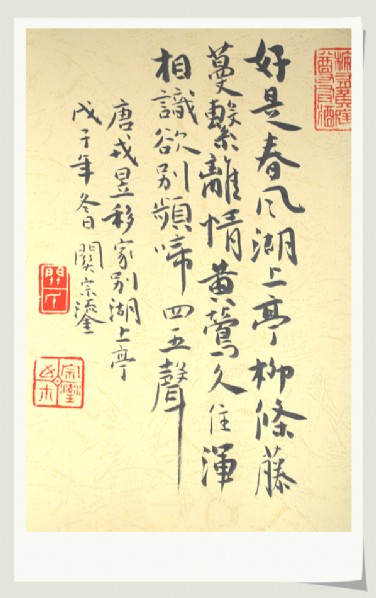 好是春风湖上亭柳條藤
蔓繫離情黃鶯久住渾
相識欲別頻啼四五聲
唐戎昱移家別湖上亭
戊子年冬日